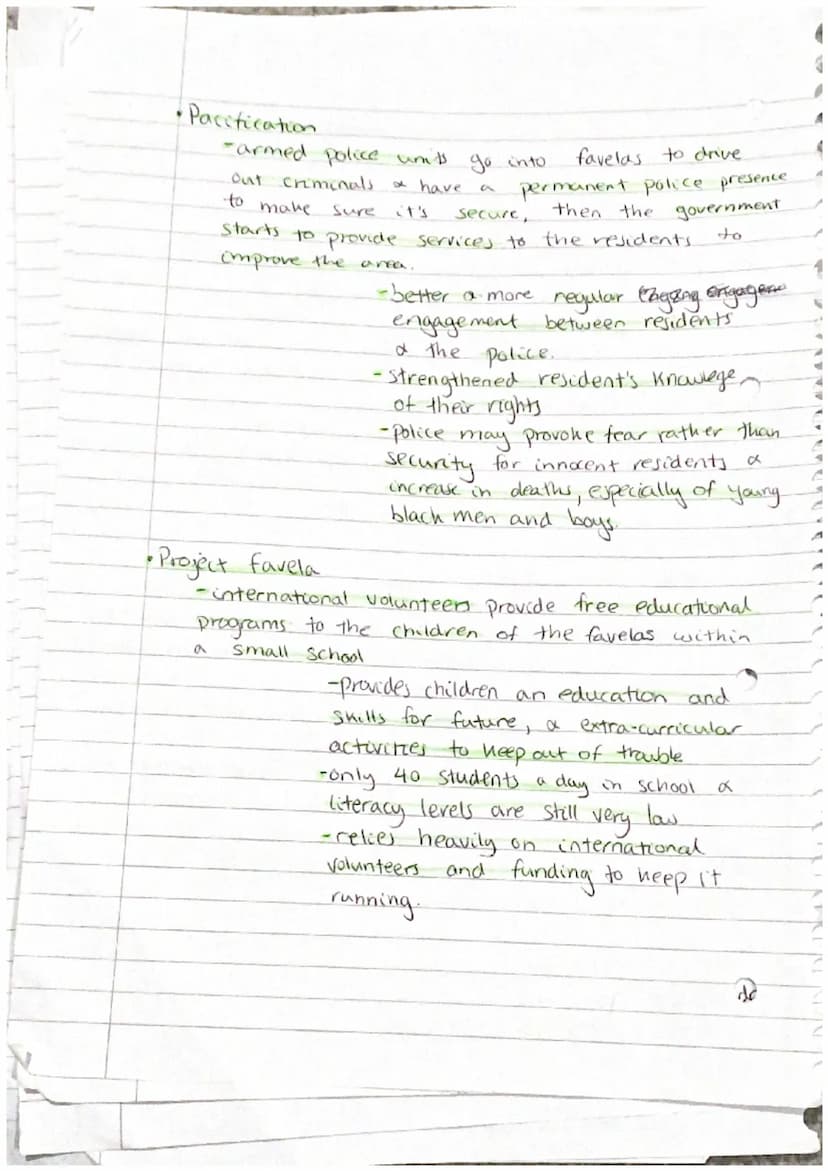 • Pacification
- armed police units go into favelas to drive
out criminals & have a permanent police presence
to make sure it's secure, then the government
starts to provide services to the residents to
improve the area.
- better & more regular
engagement between residents
& the police.
- strengthened resident's knowlege
of their rights
- police may provoke fear rather than
security for innocent residents &
increase in deaths, especially of young
black men and boys.
• Project favela
- international volunteers provide free educational
programs to the children of the favelas within
a small school
- provides children an education and
skills for future, & extra-curricular
activities to keep out of trouble
- only 40 students a day in school &
literacy levels are still very low
- relies heavily on international
volunteers and funding to keep it
running.